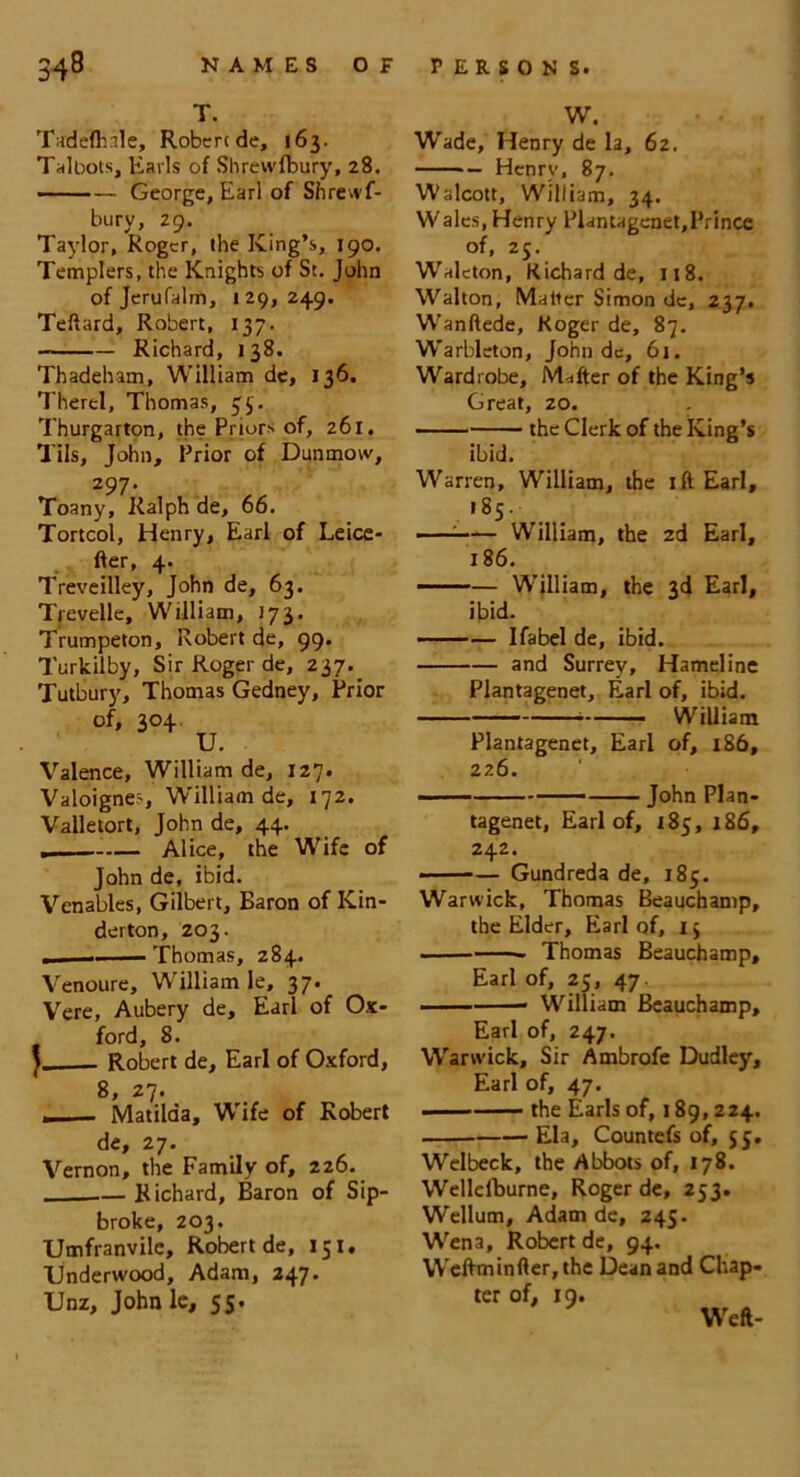 348 NAMES OF PERSONS.
T.
Tadeſhale, Robert de, 163.
Talbots, Earls of Shrewſbury, 28.
——— George, Earl of Shrewſ-
bury, 29.
Taylor, Roger, the King's, 190.
Templers, the Knights of St. John
of Jeruſalm, 129, 249.
Teſtard, Robert, 137.
——— Richard, 138.
Thadeham, William de, 136.
Therel, Thomas, 55.
Thurgarton, the Priors of, 261.
Tils, John, Prior of Dunmow,
297.
Toany, Ralph de, 66.
Tortcol, Henry, Earl of Leice-
ſter, 4.
Treveilley, John de, 63.
Trevelle, William, 173.
Trumpeton, Robert de, 99.
Turkilby, Sir Roger de, 237.
Tutbury, Thomas Gedney, Prior
of, 304.
U.
Valence, William de, 127.
Valoignes, William de, 172.
Valletort, John de, 44.
——— Alice, the Wife of
John de, ibid.
Venables, Gilbert, Baron of Kin-
derton, 203.
——— Thomas, 284.
Venoure, William le, 37.
Vere, Aubery de, Earl of Ox-
ford, 8.
——— Robert de, Earl of Oxford,
8, 27.
——— Matilda, Wife of Robert
de, 27.
Vernon, the Family of, 226.
——— Richard, Baron of Sip-
broke, 203.
Umfranvile, Robert de, 151.
Underwood, Adam, 247.
Unz, John le, 55.
W.
Wade, Henry de la, 62.
——— Henry, 87.
Walcott, William, 34.
Wales, Henry Plantagenet, Prince
of, 25.
Waleton, Richard de, 118.
Walton, Maſter Simon de, 237.
Wanſtede, Roger de, 87.
Warbleton, John de, 61.
Wardrobe, Maſter of the King's
Great, 20.
——— the Clerk of the King's
ibid.
Warren, William, the 1ſt Earl,
185.
——— William, the 2d Earl,
186.
——— William, the 3d Earl,
ibid.
——— Iſabel de, ibid.
——— and Surrey, Hameline
Plantagenet, Earl of, ibid.
——— ——— William
Plantagenet, Earl of, 186,
226.
——— ——— John Plan-
tagenet, Earl of, 185, 186,
242.
——— Gundreda de, 185.
Warwick, Thomas Beauchamp,
the Elder, Earl of, 15
——— Thomas Beauchamp,
Earl of, 25, 47.
——— William Beauchamp,
Earl of, 247.
Warwick, Sir Ambroſe Dudley,
Earl of, 47.
——— the Earls of, 189, 224.
——— Ela, Counteſs of, 55.
Welbeck, the Abbots of, 178.
Welleſburne, Roger de, 253.
Wellum, Adam de, 245.
Wena, Robert de, 94.
Weſtminſter, the Dean and Chap-
ter of, 19.
Weſt-